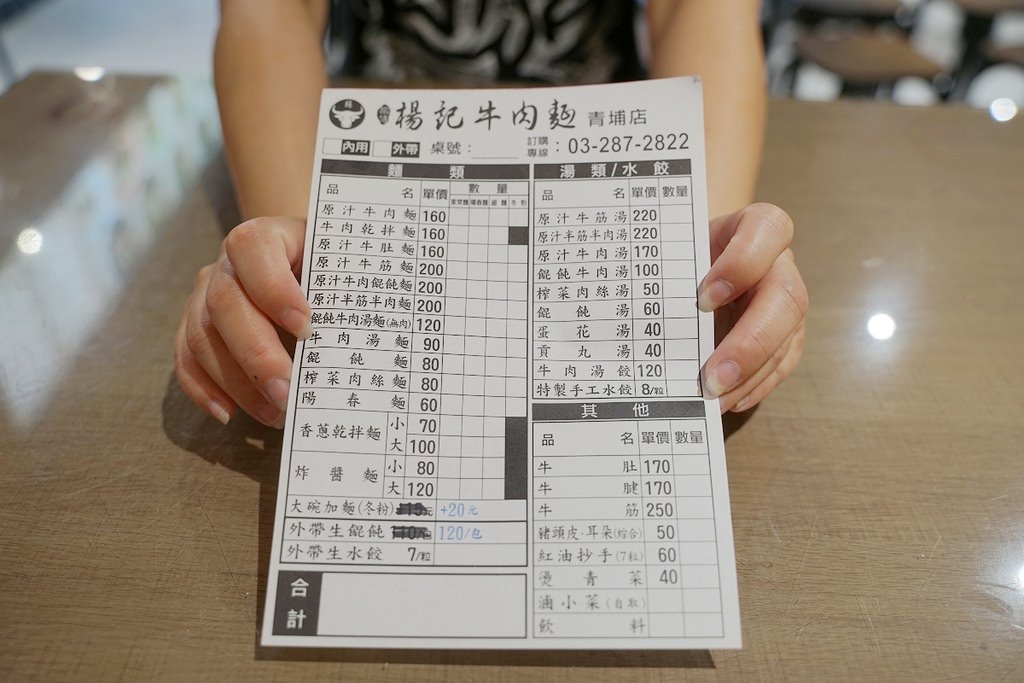 楊記牛肉麵 青埔店
內用 外帶 桌號：
訂購專線：03-287-2822
麵類
品名 單價 數量
家常麵 陽春麵 細麵 冬粉
原汁牛肉麵 160
牛肉乾拌麵 160
原汁牛肚麵 160
原汁牛筋麵 200
原汁牛肉餛飩麵 200
原汁半筋半肉麵 200
餛飩牛肉湯麵(無肉) 120
牛肉湯麵 90
餛飩麵 80
榨菜肉絲麵 80
陽春麵 60
香蔥乾拌麵 小 70
大 100
炸醬麵 小 80
大 120
大碗加麵(冬粉) +15元 +20元
外帶生餛飩 110/包 120/包
外帶生水餃 7/粒
合計
湯類/水餃
品名 單價 數量
原汁牛筋湯 220
原汁半筋半肉湯 220
原汁牛肉湯 170
餛飩牛肉湯 100
榨菜肉絲湯 50
餛飩湯 60
蛋花湯 40
貢丸湯 40
牛肉湯餃 120
特製手工水餃 8/粒
其他
品名 單價 數量
牛肚 170
牛腱 170
牛筋 250
豬頭皮、耳朵(綜合) 50
紅油抄手(7粒) 60
燙青菜 40
滷小菜(自取)
飲料